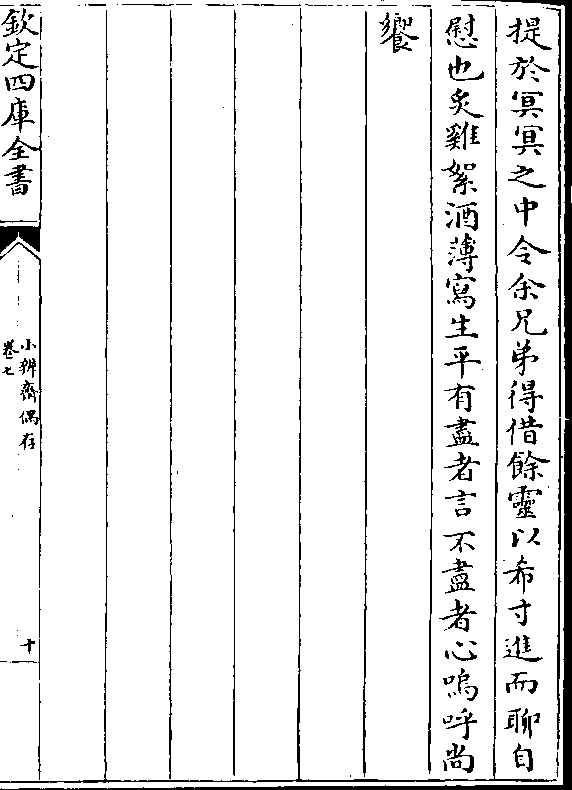 提於冥冥之中令余兄弟得借餘靈以希寸進而聊自
慰也炙雞絮酒薄寫生平有盡者言不盡者心嗚呼尚
饗
欽定四庫全書
小辨齋偶存
卷七
十